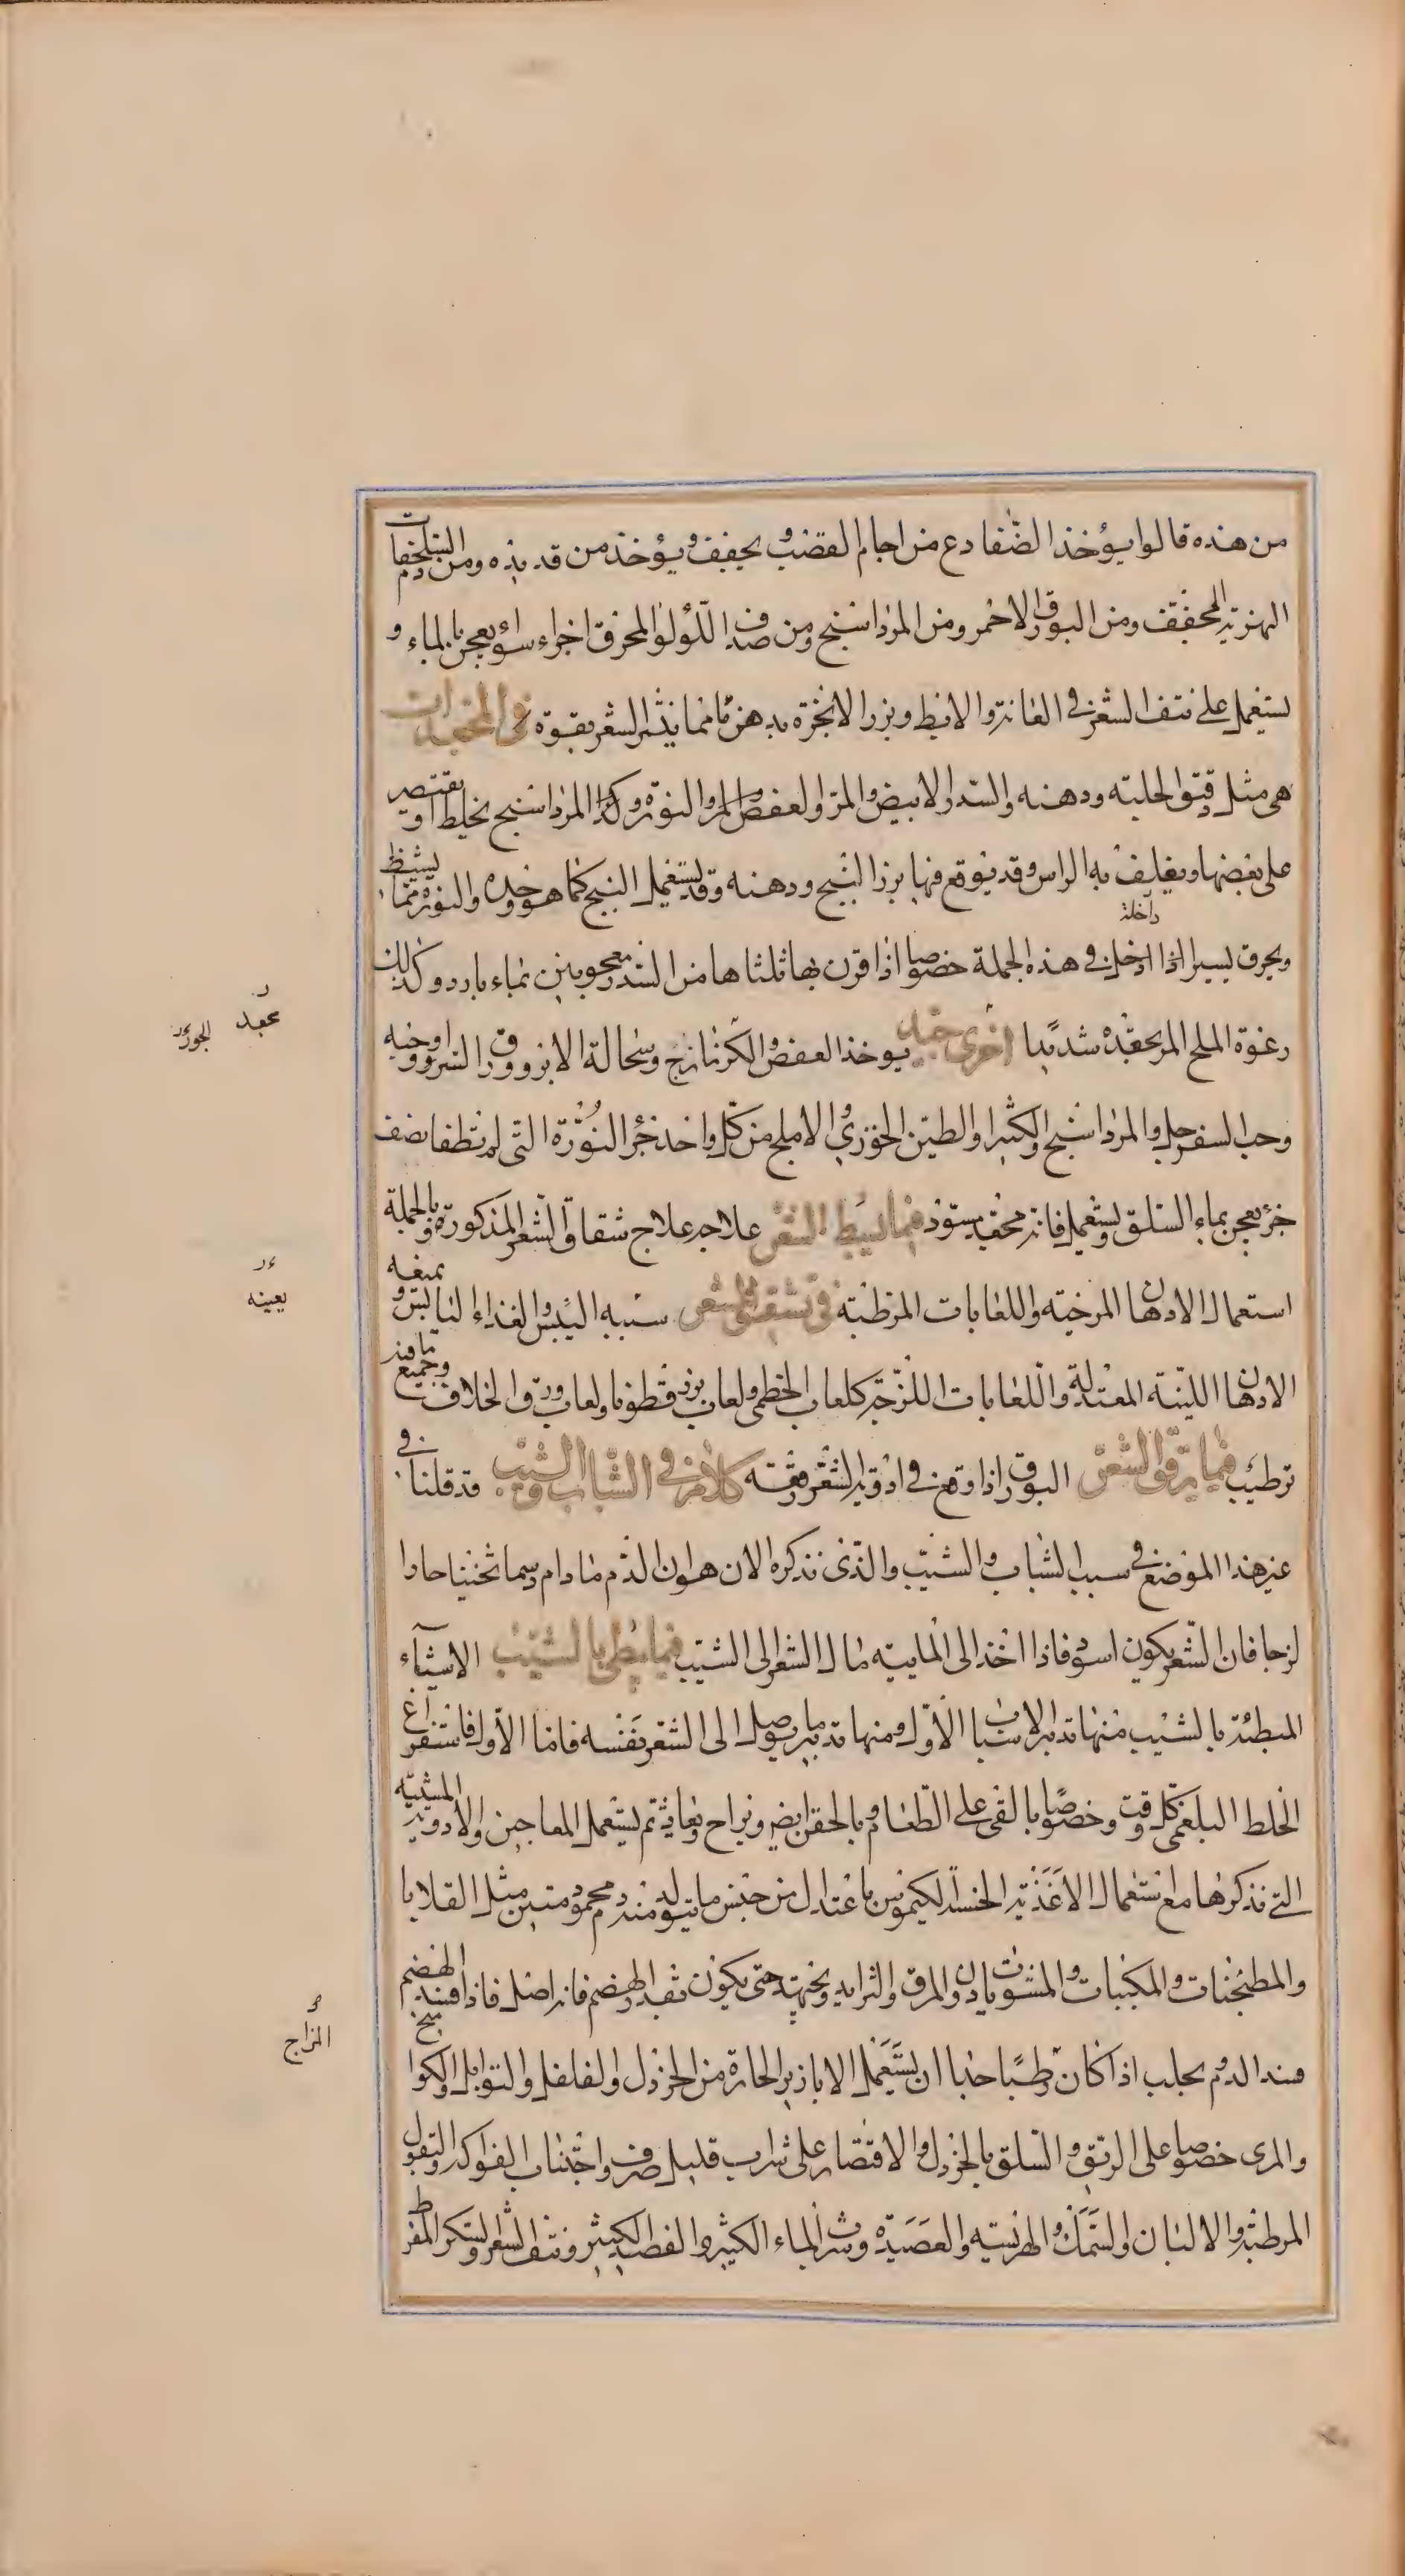 من هذه قالوا يؤخذ الضفادع من اجام القصب ويجفف ويؤخذ من قديده ومن دم السلحفات
النهرية المجفف ومن البورق الاحمر ومن المرداسنج ومن صدف اللؤلؤ المحرق اجزاء سواء يعجن بالماء و
يستعمل على نتف الشعر في العانة والابط وبزر الانجرة بدهن مما ينثر الشعر بقوة في المجعدات
هي مثل دقيق الحلبة ودهنه والسدر الابيض والمر والعفص والمر والنورة وكذا المرداسنج يخلط او يقتصر
على بعضها ويغلف به الراس وقد يوقع فيها بزر البنج ودهنه وقد يستعمل البنج كما هو وحده والنورة مما يشيط
ويحرق يسيرا اذا ادخل داخلة في هذه الجملة خصوصا اذا قرن بها ثلثاها من السدر معجونين بماء بارد وكذلك
رغوة الملح المر يجعده شديدا اخرى جيد يوخذ العفص والكزمازج وسحالة الابر وورق السرو وحبه
وحب السفرجل والمرداسنج والكثيرا والطين الخوزي والاملج من كل واحد جزء النورة التي لم تطفا نصف
جزء يعجن بماء السلق ويستعمل فانه مجعد يسود فيما يسبط الشعر علاجه علاج شقاق الشعر المذكورة وبالجملة
استعمال الادهان المرخية واللعابات المرطبة في تشقق الشعر سببه اليبس والغذاء اليابس و يمنعه
الادهان اللينة المعتدلة واللعابات اللزجة كلعاب الخطمي ولعاب بزر قطونا ولعاب ورق الخلاف وجميع ما فيه
ترطيب فيما يرقق الشعر البورق اذا وقع في ادوية الشعر رققه كلام في الشباب والشيب قد قلنا في
غير هذا الموضع في سبب الشباب والشيب والذي نذكره الان هو ان الدم ما دام دسما ثخينا حارا
لزجا فان الشعر يكون اسود فاذا اخذ الى المائية مال الشعر الى الشيب فيما يبطي بالشيب الاشياء
المبطئة بالشيب منها تدبير الاسباب الاول ومنها تدبير ما يوصل الى الشعر نفسه فاما الاول فاستفراغ
الخلط البلغمي كل وقت وخصوصا بالقى على الطعام وبالحقن ايضا ويراح ويعاد ثم يستعمل المعاجين والادوية المشيبة
التي نذكرها مع استعمال الاغذية الحسنة الكيموس باعتدال من جنس ما يتولد منه دم محمود متين مثل القلايا
والمطجنات والمكببات والمشويات دون المرق والثرايد ويجتهد حتى يكون بقدر الهضم فانه اصل فاذا فسد الهضم
فسد الدم يجب اذا كان رطبا جدا ان يستعمل الابازير الحارة من الخردل والفلفل والتوابل والكوا
والمري خصوصا على الريق والسلق بالخردل والاقتصار على شراب قليل صرف واجتناب الفواكه والبقول
المرطبة والالبان والسمك والهريسة والعصيدة وشرب الماء الكثير والفصد الكثير ونتف الشعر والسكر المفرط
مجعد
الجوز
يعينه
المزاج